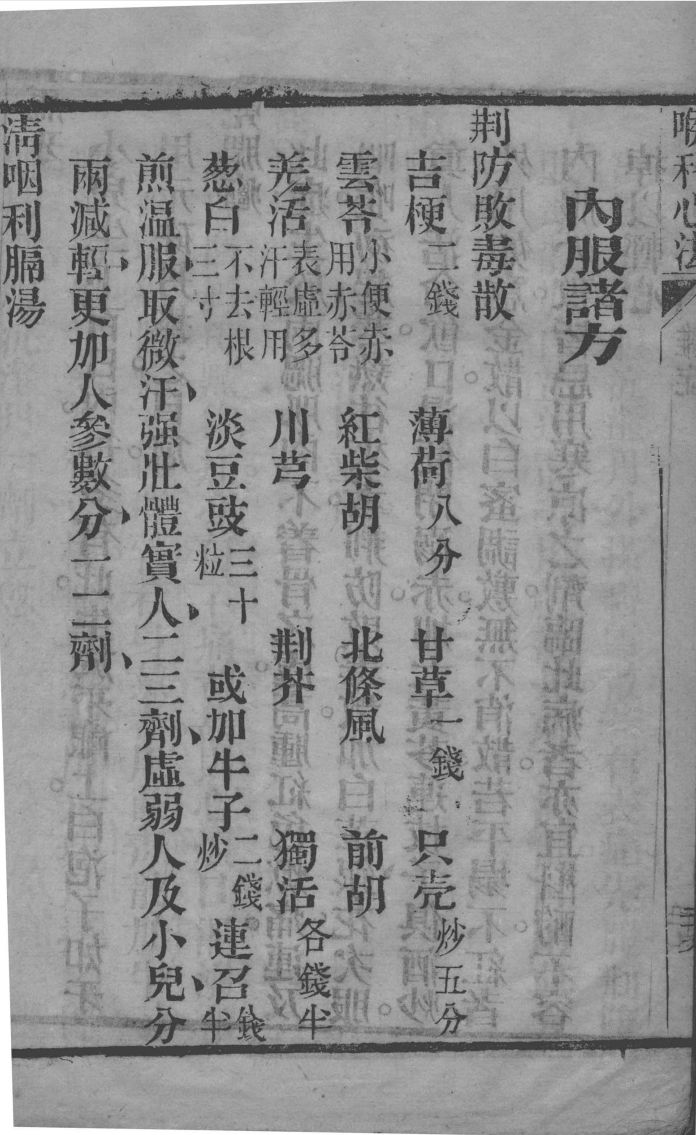 喉科心法
內服諸方
荆防敗毒散
吉梗二錢 薄荷八分 甘草一錢 只壳炒五分
雲苓小便赤用赤苓 紅柴胡 北條風 前胡
羌活表虛多汗輕用 川芎 荆芥 獨活各錢半
葱白不去根三寸 淡豆豉三十粒 或加牛子二錢炒 連召錢半
煎溫服取微汗强壯體實人二三劑虛弱人及小兒分
兩減輕更加人參數分一二劑
淸咽利膈湯